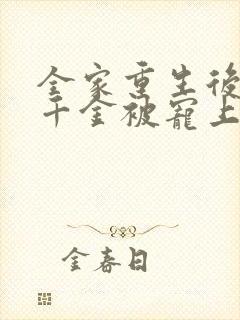 全家重生後
千金被寵上
金春日